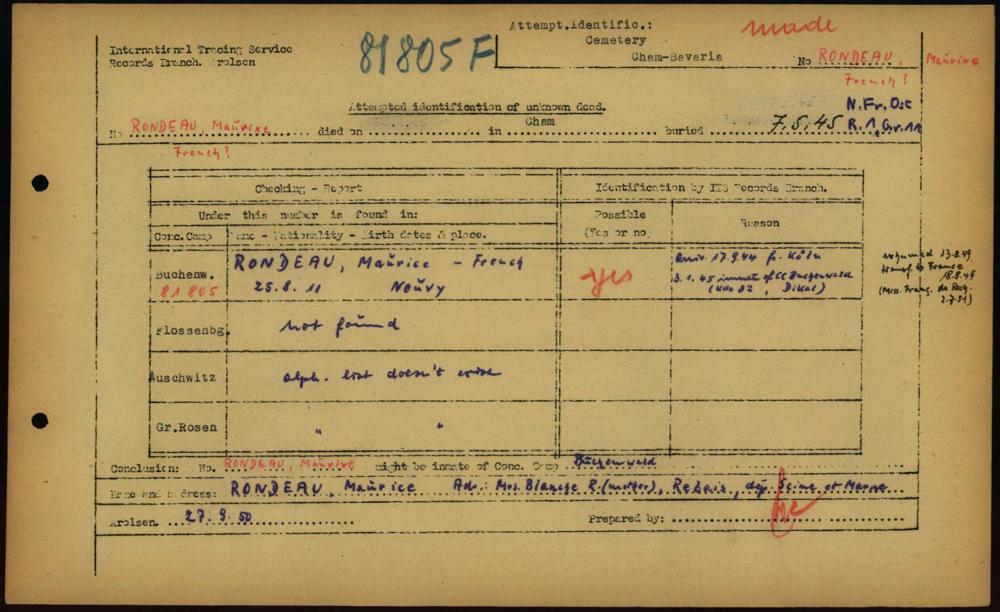 Attempt.Identific.: made
International Tracing Service 81805 F Cemetery
Records Branch. Arolsen Cham-Bavaria No RONDEAU, Maurice
French?
Attempted identification of unknown dead. N.Fr.Ost
No RONDEAU, Maurice died on in Cham buried 7.5.45 R.1, Gr.11
French?
Checking - Report Identification by ITS Records Branch.
Under this number is found in: Possible Reason
Conc.Camp Name - Nationality - Birth dates & place. (Yes or no)
Buchenw. RONDEAU, Maurice - French yes Arriv. 17.9.44 fr. Köln
81 805 25.8.11 Neuvy 3.1.45 inmate of CC Buchenwald
(Kdo 82, Dikal)
exhumed 13.8.49
transf. to France
18.8.49
(Miss. Franç. de Rech.
2.7.51)
Flossenbg. not found
Auschwitz alph. list doesn't exist
Gr.Rosen " "
Conclusion: No. RONDEAU, Maurice might be inmate of Conc. Camp Buchenwald
Name and address: RONDEAU, Maurice Adr.: Mrs. Blanche R. (mother), Rebais, dep. Seine et Marne
Arolsen. 27.9.50 Prepared by: